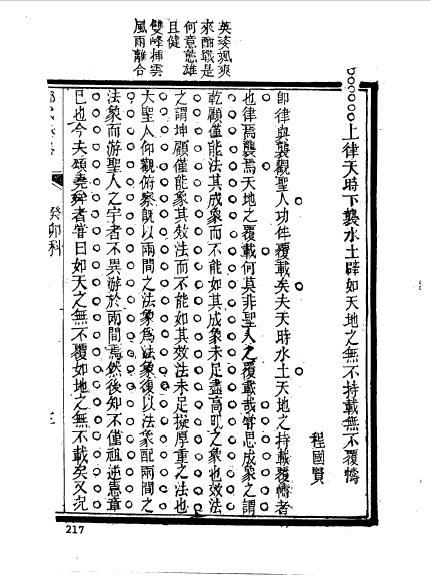 英姿颯爽
來酣戰是
何意態雄
且健
雙峰插雲
風雨離合
上律天時下襲水土辟如天地之無不持載無不覆幬
程國賢
卽律與襲觀聖人功侔覆載矣夫天時水土天地之持載覆幬者
也律焉襲焉天地之覆載何莫非聖人之覆載哉甞思成象之謂
乾顧僅能法其成象而不能如其成象未足盡高明之象也效法
之謂坤顧僅能象其效法而不能如其效法未足擬厚重之法也
大聖人仰觀俯察旣以兩間之法象為法象復以法象配兩間之
法象而游聖人之宇者不異游於兩間焉然後知不僅祖述憲章
已也今夫頌堯舜者甞曰如天之無不覆如地之無不載矣又況
癸卯科
217